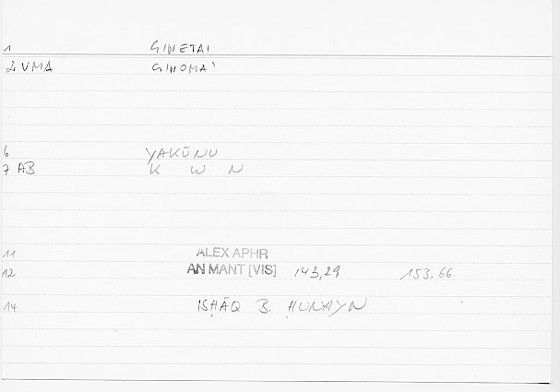 1 GINETAI
2 VMA GINOMAI
6 YAKŪNU
7 AB K W N
11 ALEX APHR
12 AN MANT [VIS] 143,29 153.66
14 ISḤĀQ B. ḤUNAYN